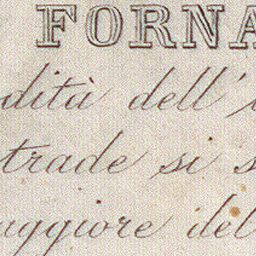 FORNA
dità dell'
trade si s
aggiore del